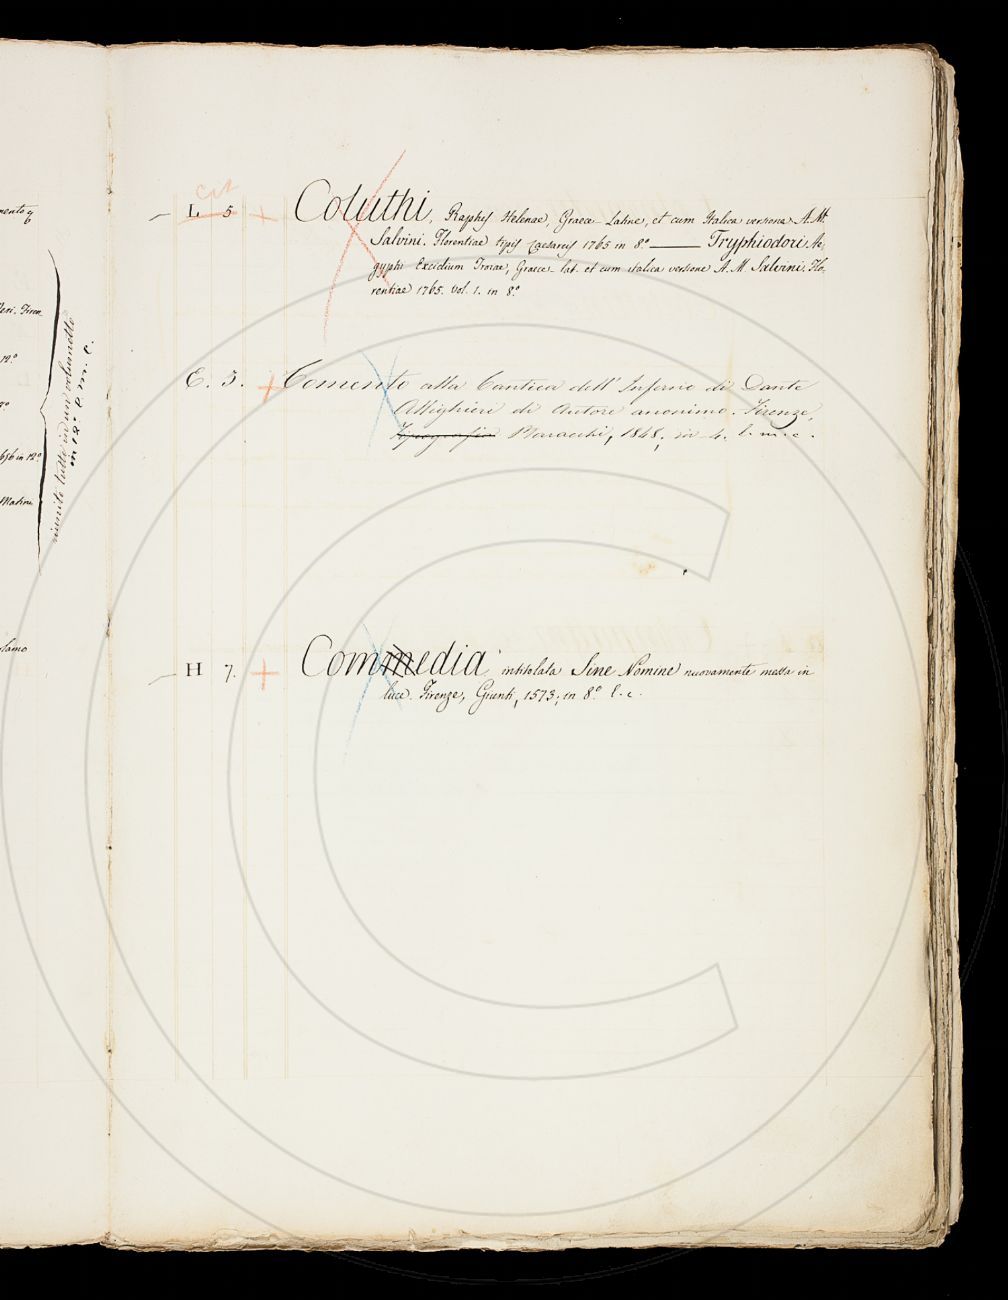 mento
12.º
656 in 12.º
riunito tutto in un volumetto
in 12.º l. m. c.
Cat
L 5 + Coluthi, Raptus Helenae, Graece-Latine, et cum Italica versione A. M.
Salvini. Florentiae typis Caesareis 1765 in 8.º — Tryphiodori Ae-
gyptii Excidium Troiae, Graece-lat. et cum italica versione A. M. Salvini. Flo-
rentiae 1765. Vol. 1. in 8.º
E. 3. + Comento alla Cantica dell'Inferno di Dante
Allighieri di Autore anonimo. Firenze,
Tipografia Baracchi, 1848, in 4. l. m. c.
H 7. + Commedia intitolata Sine Nomine nuovamente messa in
luce. Firenze, Giunti, 1573; in 8.º l. c.